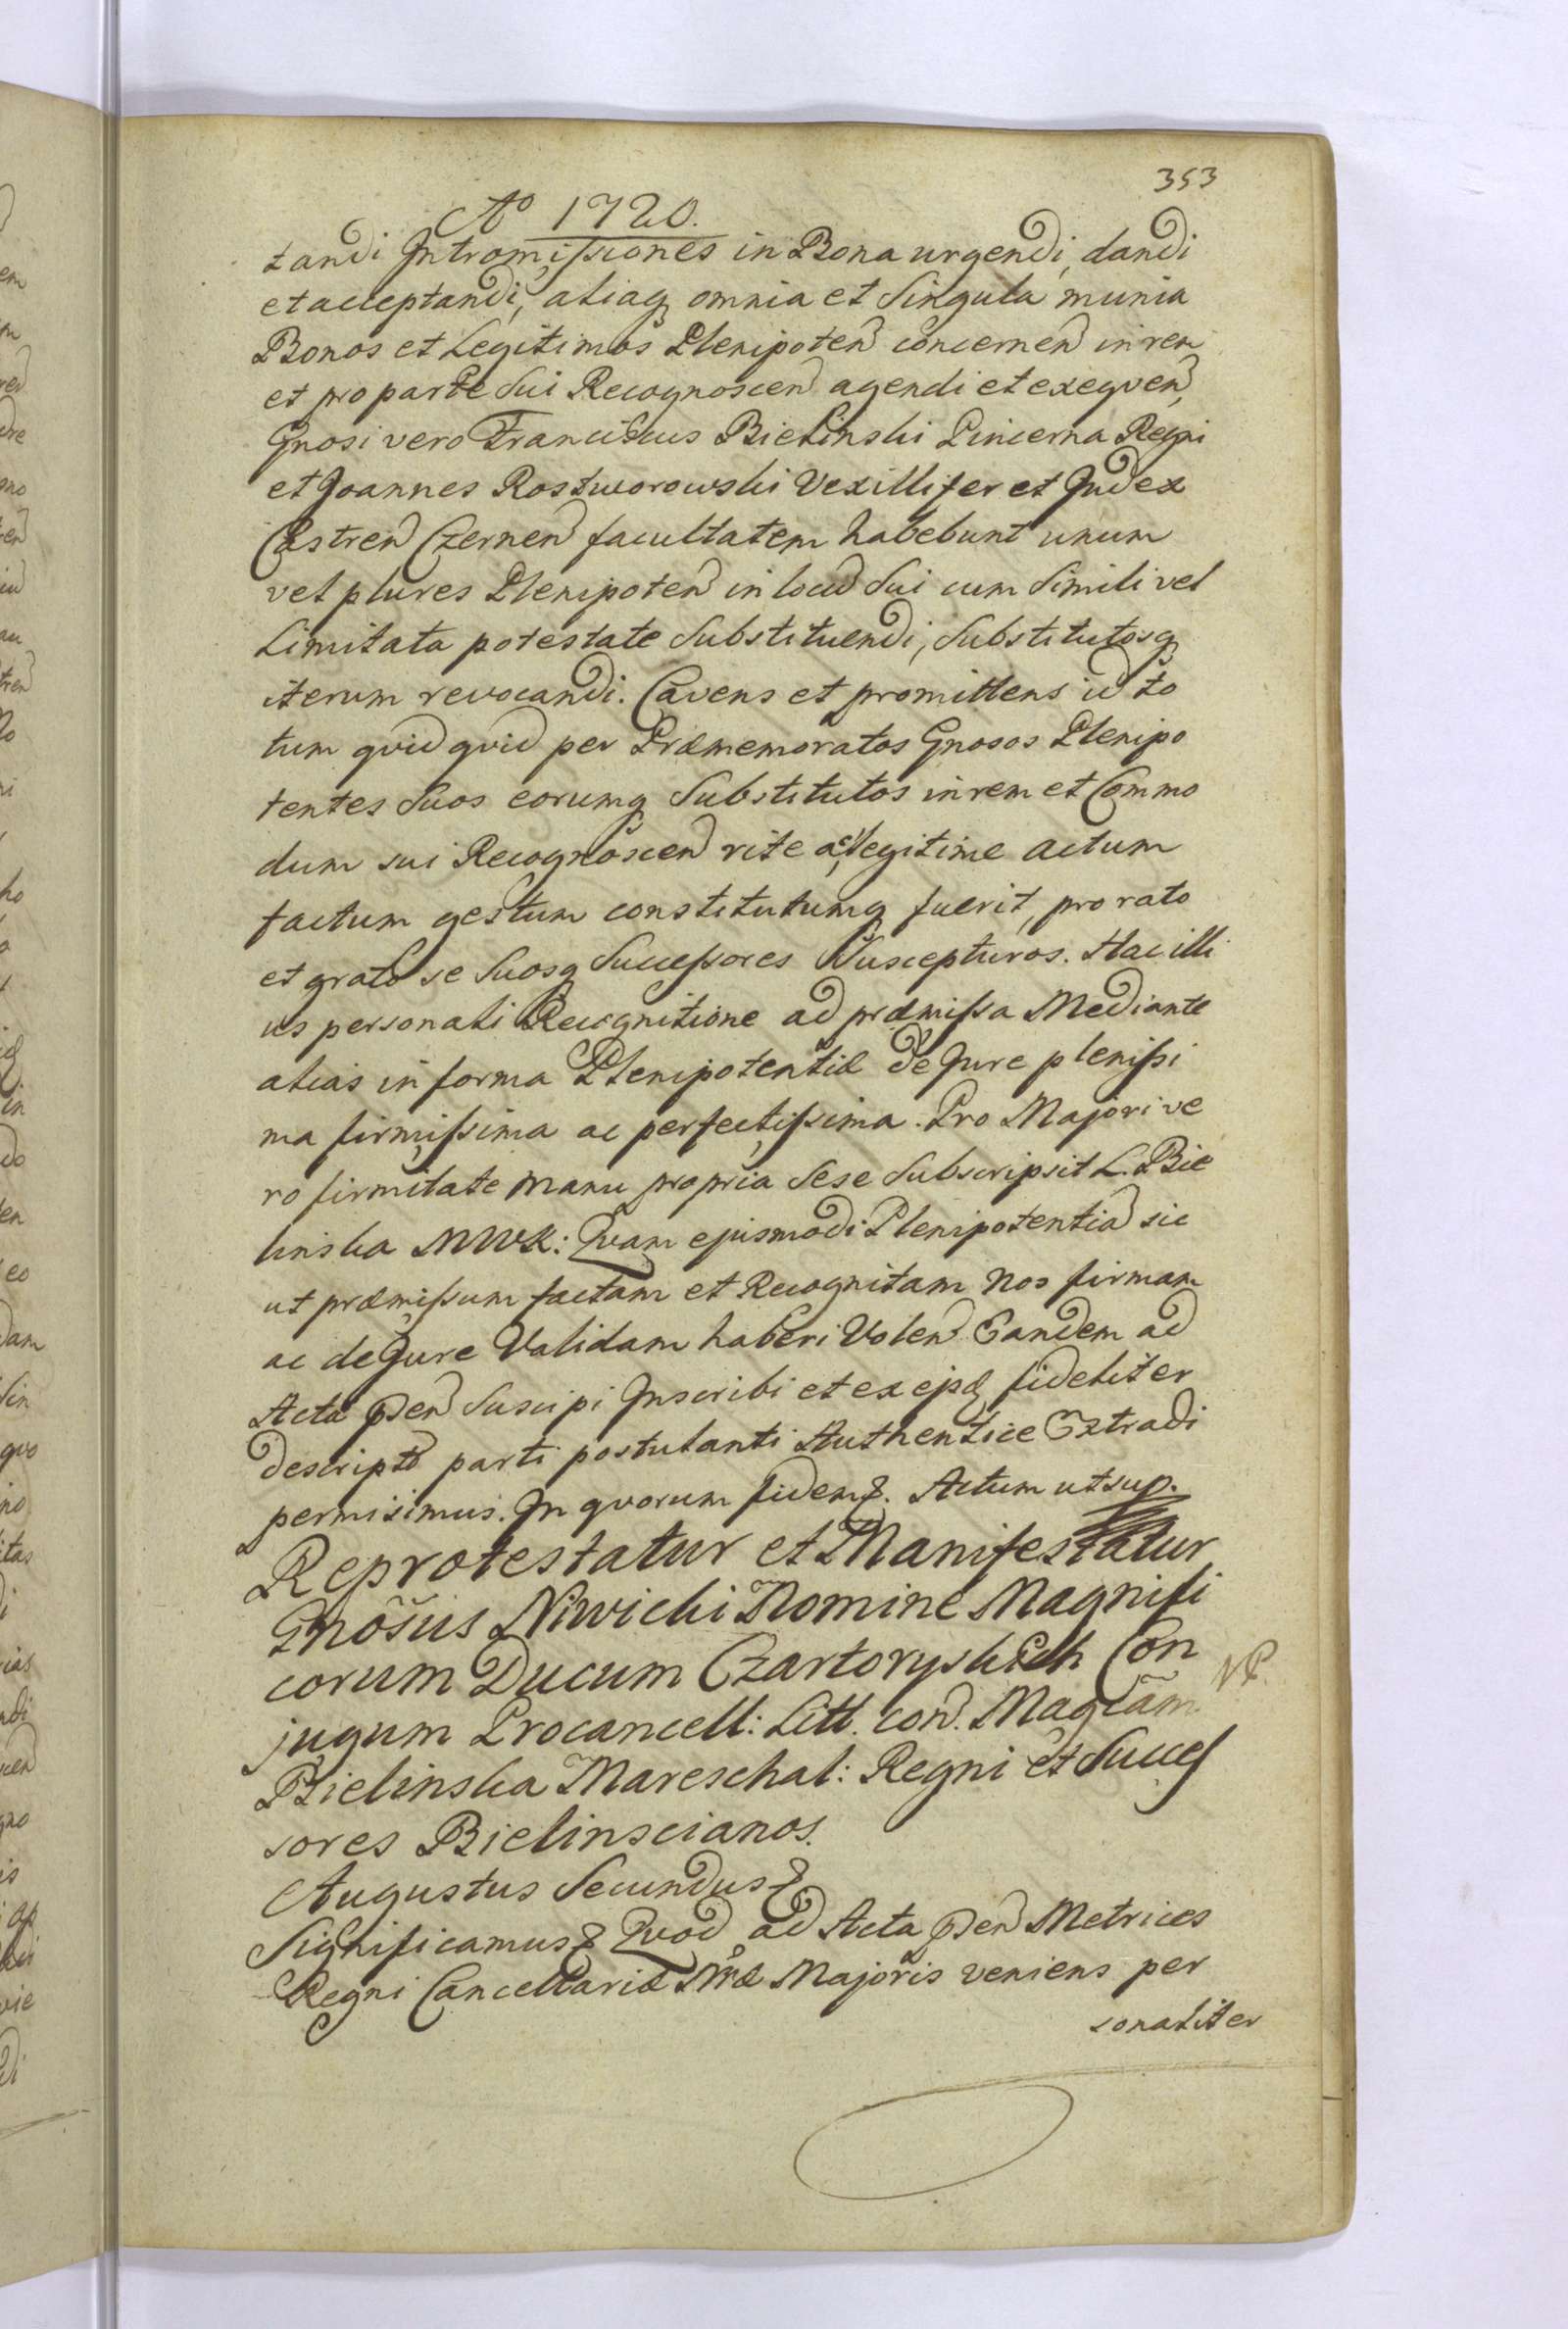 353
Aº 1720.
tandi Intromissiones in Bona urgendi, dandi
et acceptandi, aliaq omnia et Singula munia
Bonos et Legitimos Plenipoten concernen in rem
et pro parte Sui Recognoscen agendi et exeqven,
Gnosi vero Franciscus Bielinski Pincerna Regni
et Joannes Rostworowski Vexillifer et Judex
Castren Czernen facultatem habebunt unum
vel plures Plenipoten in locu Sui cum Simili vel
Limitata potestate Substituendi, Substitutosq
iterum revocandi. Cavens et promittens id to
tum qvid qvid per Præmemoratos Gnosos Plenipo
tentes Suos eorumq Substitutos in rem et Commo
dum sui Recognoscen rite ac legitime actum
factum gestum constitutumq fuerit, pro rato
et grato se Suosq Successores Suscepturos. Hac illi
us personali Recognitione ad præmissa Mediante
alias in forma Plenipotentiæ de Jure plenissi
ma firmissima ac perfectissima. Pro Majori ve
ro firmitate manu propria Sese Subscripsit L. Bie
linska MWK: Qvam ejusmodi Plenipotentia sic
ut præmissum factam et Recognitam Nos firmam
ac de Jure Validam haberi Volen Eandem ad
Acta pñ Suscipi Inscribi et ex ejsd fideliter
descripto parti postulanti Authentice Extradi
permisimus. In qvorum fidem &. Actum ut sup.
Reprotestatur et Manifestatur
Gnosus Niwicki Nomine Magnifi
corum Ducum Czartoryskich Con
jugum Procancell: Litt. con. Magcam
Bielinska Mareschal: Regni et Succes
sores Bielinscianos.
Augustus Secundus &
Significamus & Qvod ad Acta pñ Metrices
Regni Cancellariæ Nræ Majoris veniens per
sonaliter